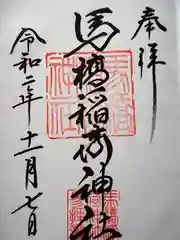 奉拝
馬橋稲荷神社
令和二年十一月七日